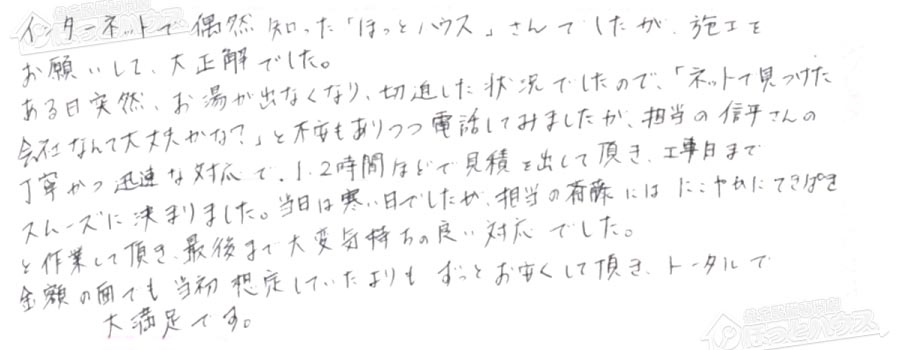 インターネットで偶然知った「ほっとハウス」さんでしたが、施工を
お願いして、大正解でした。
ある日突然、お湯が出なくなり、切迫した状況でしたので、「ネットで見つけた
会社なんて大丈夫かな?」と不安もありつつ電話してみましたが、担当の信平さんの
丁寧かつ迅速な対応で、1.2時間ほどで見積を出して頂き、工事日まで
スムーズに決まりました。当日は寒い日でしたが、担当の斉藤にはにこやかにてきぱき
と作業して頂き、最後まで大変気持ちの良い対応でした。
金額の面でも当初想定していたよりもずっとお安くして頂き、トータルで
大満足です。
ほっとハウス